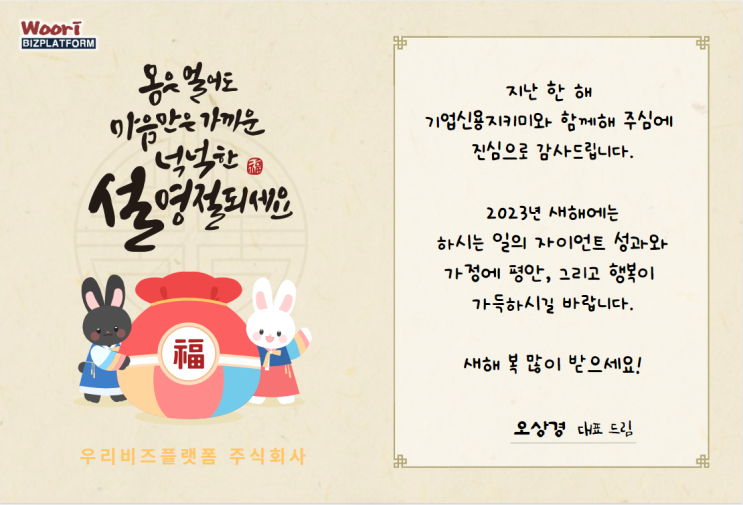 Woori
BIZPLATFORM
몸은 멀어도
마음만은 가까운
넉넉한
福
설 명절되세요
福
우리비즈플랫폼 주식회사
지난 한 해
기업신용지키미와 함께해 주심에
진심으로 감사드립니다.
2023년 새해에는
하시는 일의 자이언트 성과와
가정에 평안, 그리고 행복이
가득하시길 바랍니다.
새해 복 많이 받으세요!
오상경 대표 드림